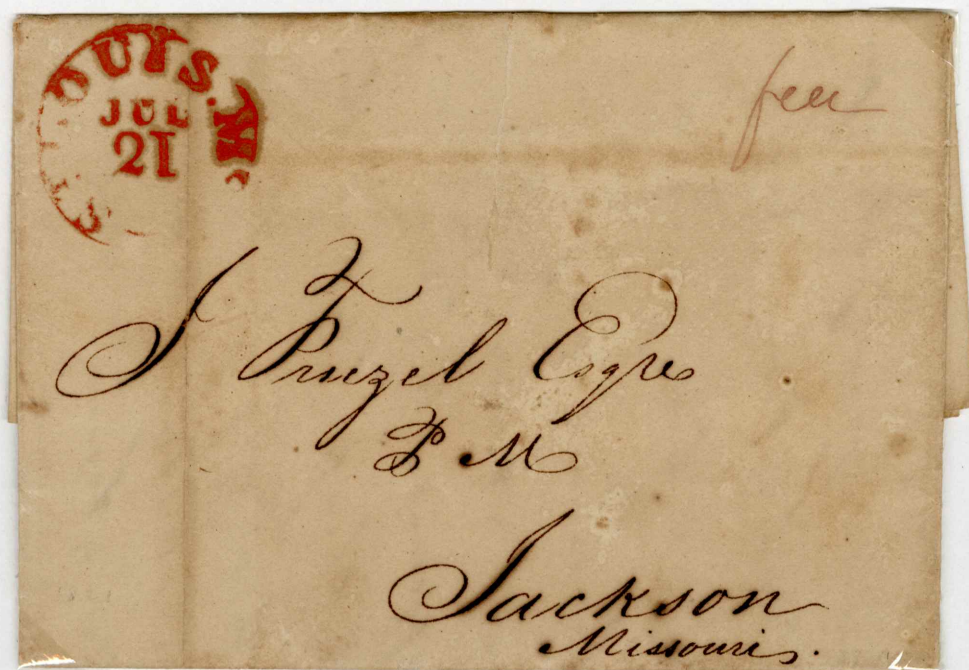 ST LOUIS. Mo
JUL
21
free
J Frizel Esqre
P M
Jackson
Missouri.